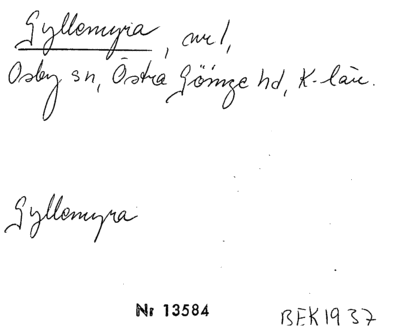 Gyllemyra, nr 1,
Osby sn, Östra Göinge hd, K-län.
Gyllemyra
Nr 13584
BEK1937